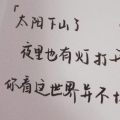 『太阳下山了
夜里也有灯打开
你看这世界并不坏